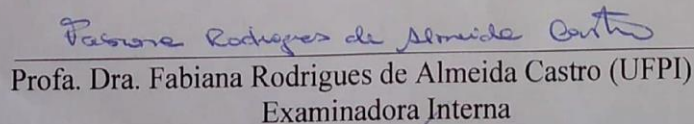 Rodrigues de Almeida Castro
Profa. Dra. Fabiana Rodrigues de Almeida Castro (UFPI)
Examinadora Interna